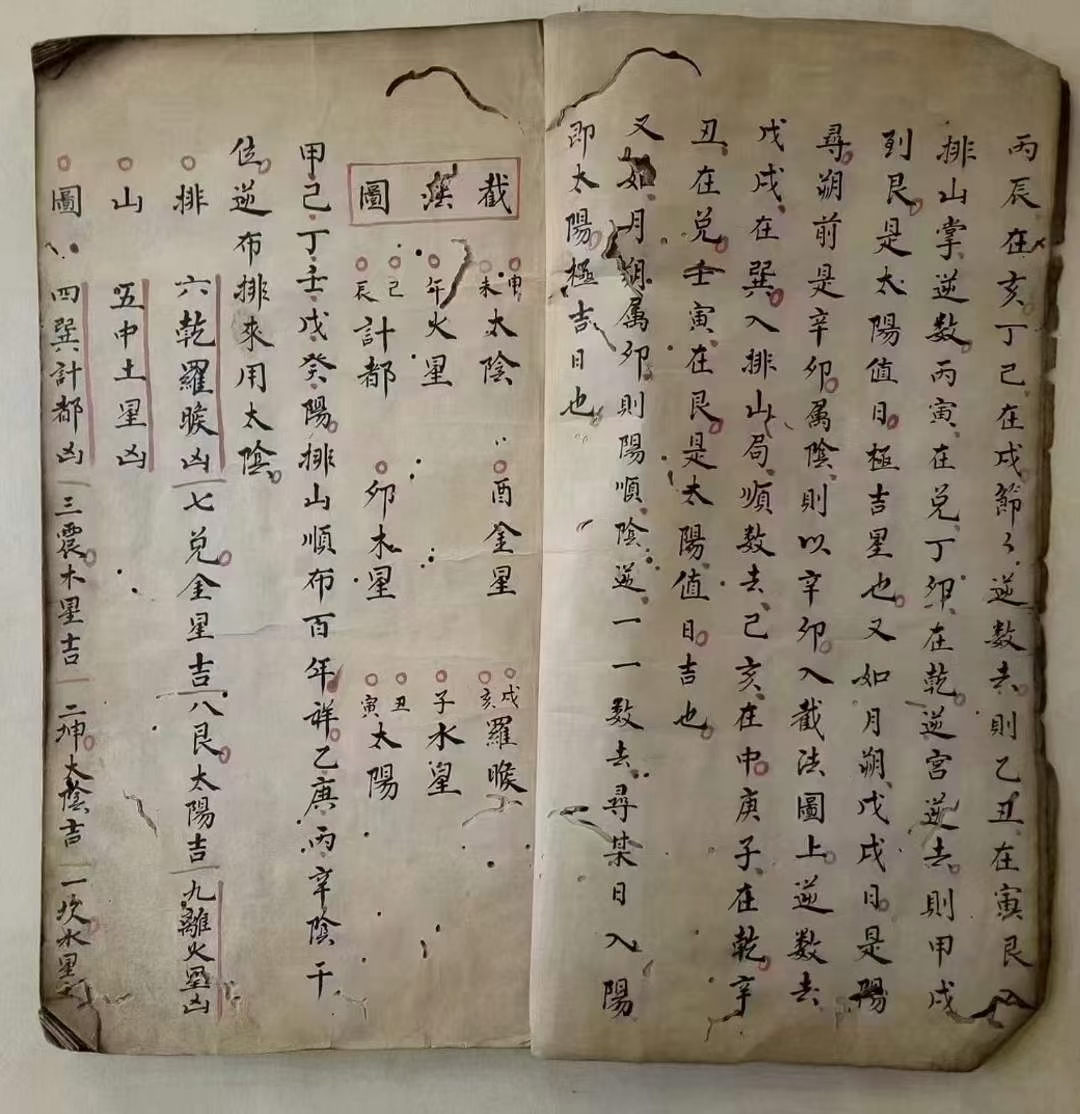 丙辰在亥丁己在戌節々逆数去則乙丑在寅艮入
排山掌逆数丙寅在兑丁卯在乾逆宫逆去則甲戌
到艮是太陽值日極吉星也又如月朔戊戌日是陽
尋朔前是辛卯属陰則以辛卯入截法圖上逆数去
戊戌在巽入排山局順数去己亥在中庚子在乾辛
丑在兑壬寅在艮是太陽值日吉也
又如月朔属卯則陽順陰逆一一数去尋某日入陽
即太陽極吉日也
截法圖
申未太陰 酉金星 戌亥羅睺
午火星 子水星
己辰計都 卯木星 丑寅太陽
甲己丁壬戊癸陽排山順布百年祥乙庚丙辛陰干
位逆布排來用太陰
排 六乾羅睺凶 七兑金星吉 八艮太陽吉 九離火星凶
山 五中土星凶
圖 四巽計都凶 三震木星吉 二坤太陰吉 一坎水星